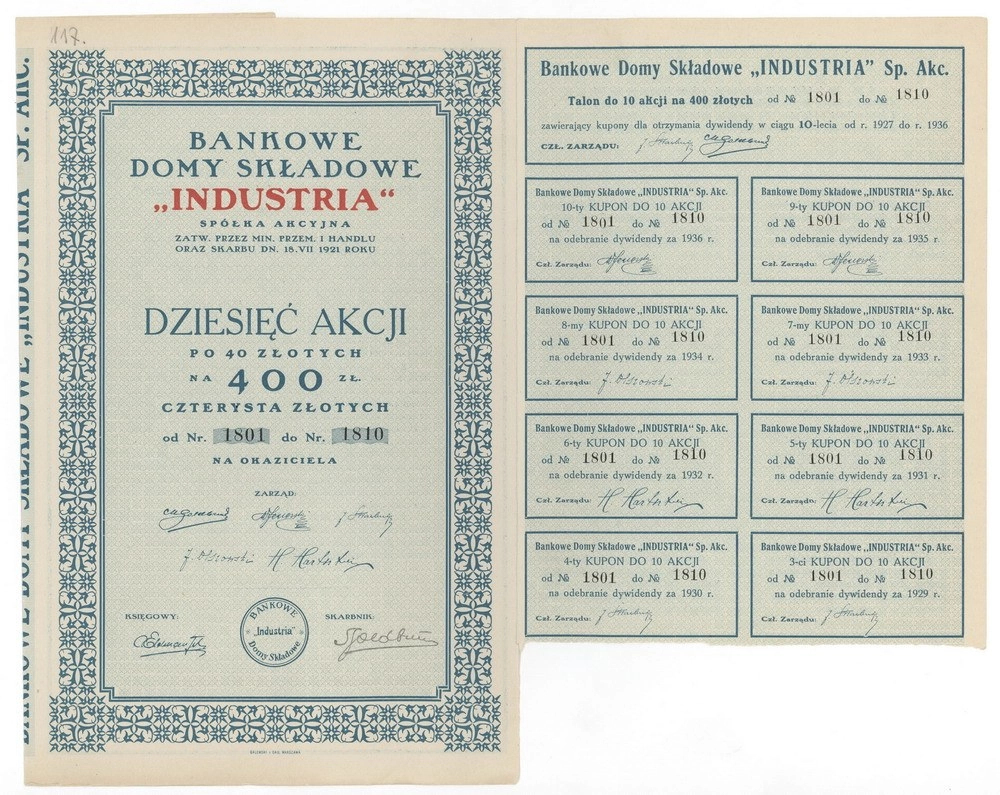 117.
BANKOWE DOMY SKŁADOWE „INDUSTRIA" SP. AKC.
BANKOWE
DOMY SKŁADOWE
„INDUSTRIA“
SPÓŁKA AKCYJNA
ZATW. PRZEZ MIN. PRZEM. I HANDLU
ORAZ SKARBU DN. 18.VII 1921 ROKU
DZIESIĘĆ AKCJI
PO 40 ZŁOTYCH
NA 400 ZŁ.
CZTERYSTA ZŁOTYCH
od Nr. 1801 do Nr. 1810
NA OKAZICIELA
ZARZĄD:
J. Olszowski
KSIĘGOWY:
SKARBNIK:
BANKOWE
„Industria“
Domy Składowe
Bankowe Domy Składowe „INDUSTRIA” Sp. Akc.
Talon do 10 akcji na 400 złotych od № 1801 do № 1810
zawierający kupony dla otrzymania dywidendy w ciągu 10-lecia od r. 1927 do r. 1936
CZŁ. ZARZĄDU:
Bankowe Domy Składowe „INDUSTRIA“ Sp. Akc.
10-ty KUPON DO 10 AKCJI
od № 1801 do № 1810
na odebranie dywidendy za 1936 r.
Czł. Zarządu:
Bankowe Domy Składowe „INDUSTRIA“ Sp. Akc.
9-ty KUPON DO 10 AKCJI
od № 1801 do № 1810
na odebranie dywidendy za 1935 r
Czł. Zarządu:
Bankowe Domy Składowe „INDUSTRIA“ Sp. Akc.
8-my KUPON DO 10 AKCJI
od № 1801 do № 1810
na odebranie dywidendy za 1934 r.
Czł. Zarządu: J. Olszowski
Bankowe Domy Składowe „INDUSTRIA“ Sp. Akc.
7-my KUPON DO 10 AKCJI
od № 1801 do № 1810
na odebranie dywidendy za 1933 r.
Czł. Zarządu: J. Olszowski
Bankowe Domy Składowe „INDUSTRIA“ Sp. Akc.
6-ty KUPON DO 10 AKCJI
od № 1801 do № 1810
na odebranie dywidendy za 1932 r.
Czł. Zarządu:
Bankowe Domy Składowe „INDUSTRIA“ Sp. Akc.
5-ty KUPON DO 10 AKCJI
od № 1801 do № 1810
na odebranie dywidendy za 1931 r.
Czł. Zarządu:
Bankowe Domy Składowe „INDUSTRIA“ Sp. Akc.
4-ty KUPON DO 10 AKCJI
od № 1801 do № 1810
na odebranie dywidendy za 1930 r.
Czł. Zarządu:
Bankowe Domy Składowe „INDUSTRIA“ Sp. Akc.
3-ci KUPON DO 10 AKCJI
od № 1801 do № 1810
na odebranie dywidendy za 1929 r.
Czł. Zarządu: